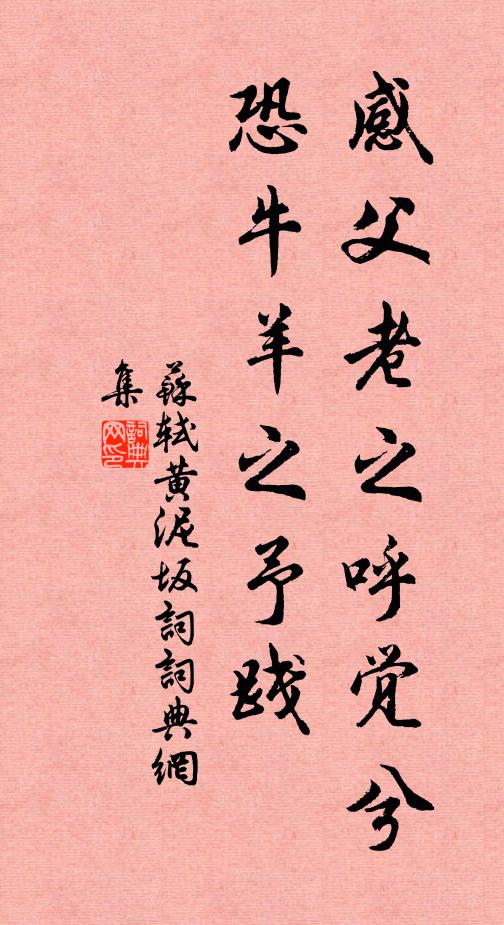 感父老之呼觉兮
恐牛羊之予践
蘇轼黄泥坂詞詞典網
集
詞典
网印